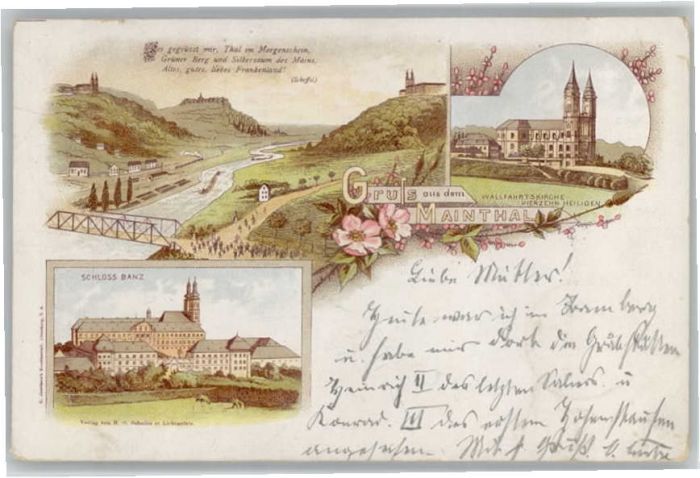 Sei gegrüsst mir, Thal im Morgenschein,
Grüner Berg und Silbersaum des Mains,
Altes, gutes, liebes Frankenland!
(Scheffel)
Gruss aus dem
MAINTHAL
WALLFAHRTSKIRCHE
VIERZEHN HEILIGEN
SCHLOSS BANZ
Verlag von H. O. Schulze in Lichtenfels.
Liebe Mutter!
Heute war ich in Bamberg
u. habe mir dort die Grabstätten
Heinrich II des letzten Saliers u
Konrad. III des ersten Hohenstaufen
angesehen. Mit Gruß